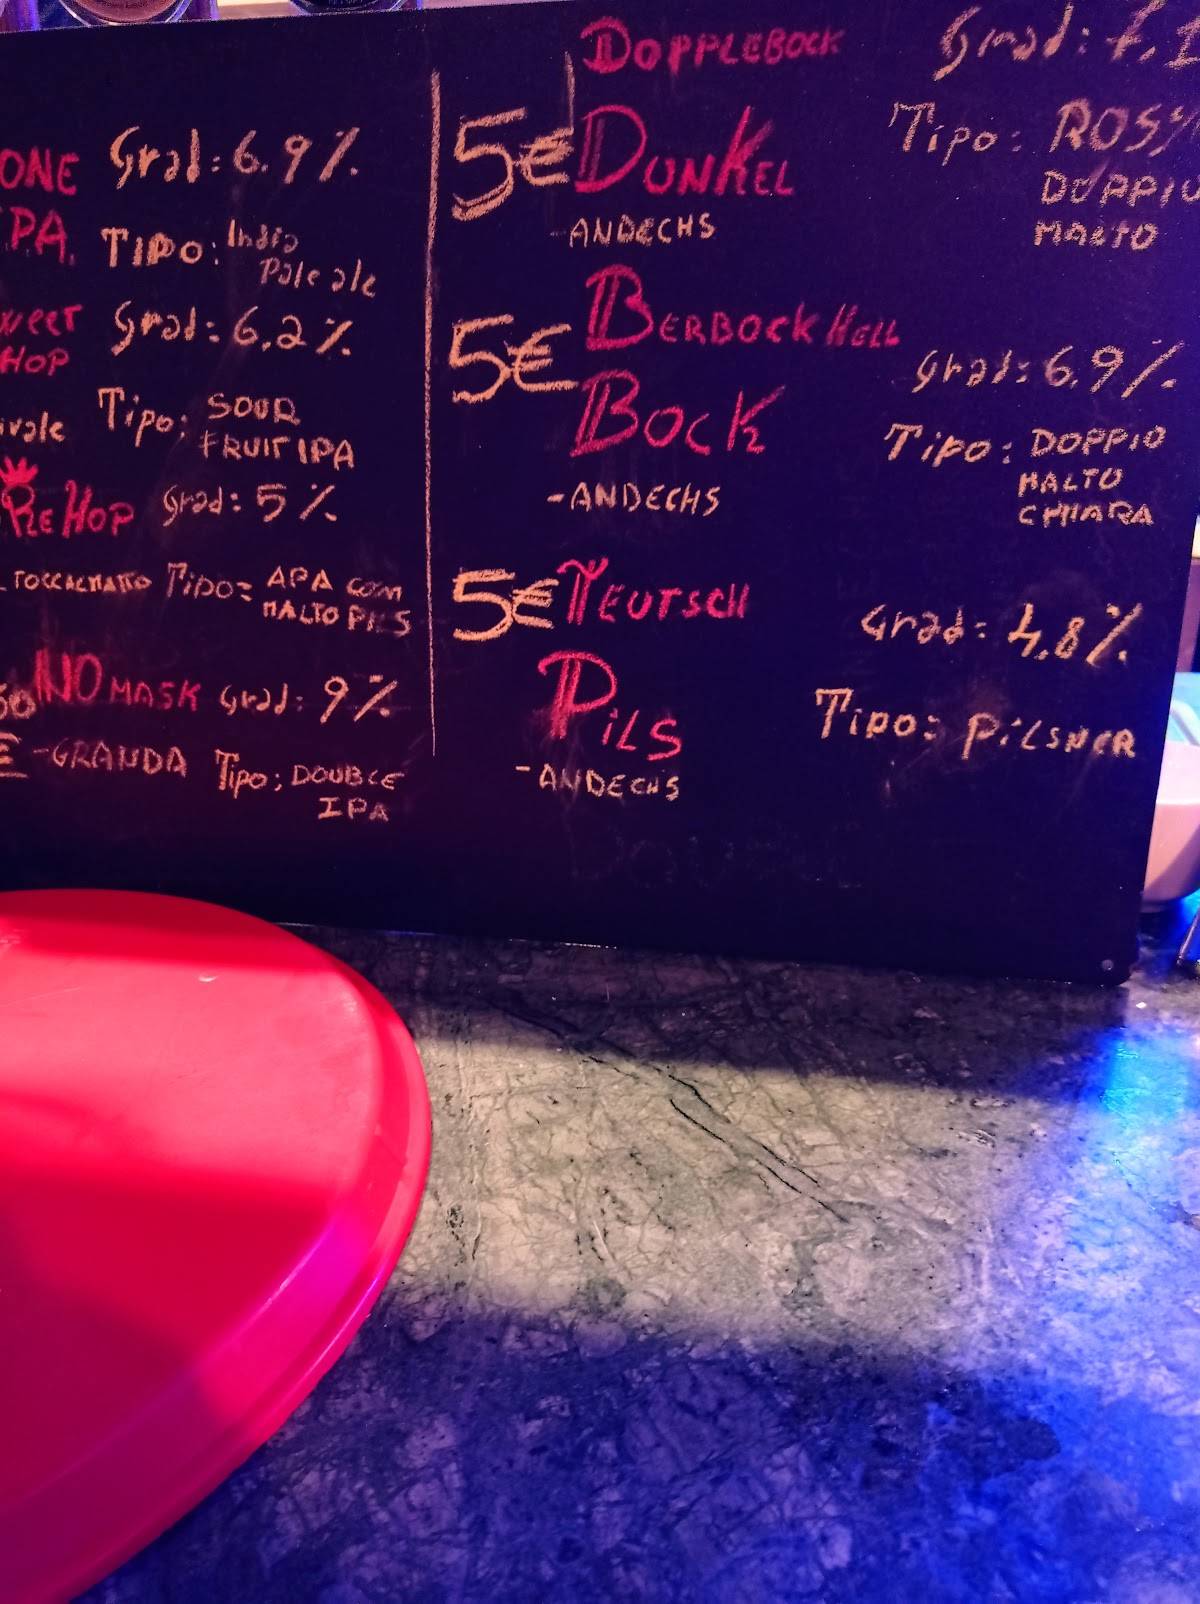 ONE Grad: 6.9%
IPA. TIPO: India
Pale ale
Grad: 6.2%
HOP
Tipo: SOUR
FRUIT IPA
Re HOP Grad: 5%
TOCCALMATTO Tipo= APA con
MALTO PILS
50 NO MASK Grad: 9%
€ -GRANDA Tipo: DOUBLE
IPA
DOPPLEBOCK Grad: 7.1
5€ DUNKEL Tipo: ROSS
DOPPIO
-ANDECHS MALTO
5€ BERBOCK HELL
BOCK Grad: 6.9%
Tipo: DOPPIO
MALTO
-ANDECHS CHIARA
5€ TEUTSCH Grad: 4.8%
PILS Tipo: PILSNER
-ANDECHS